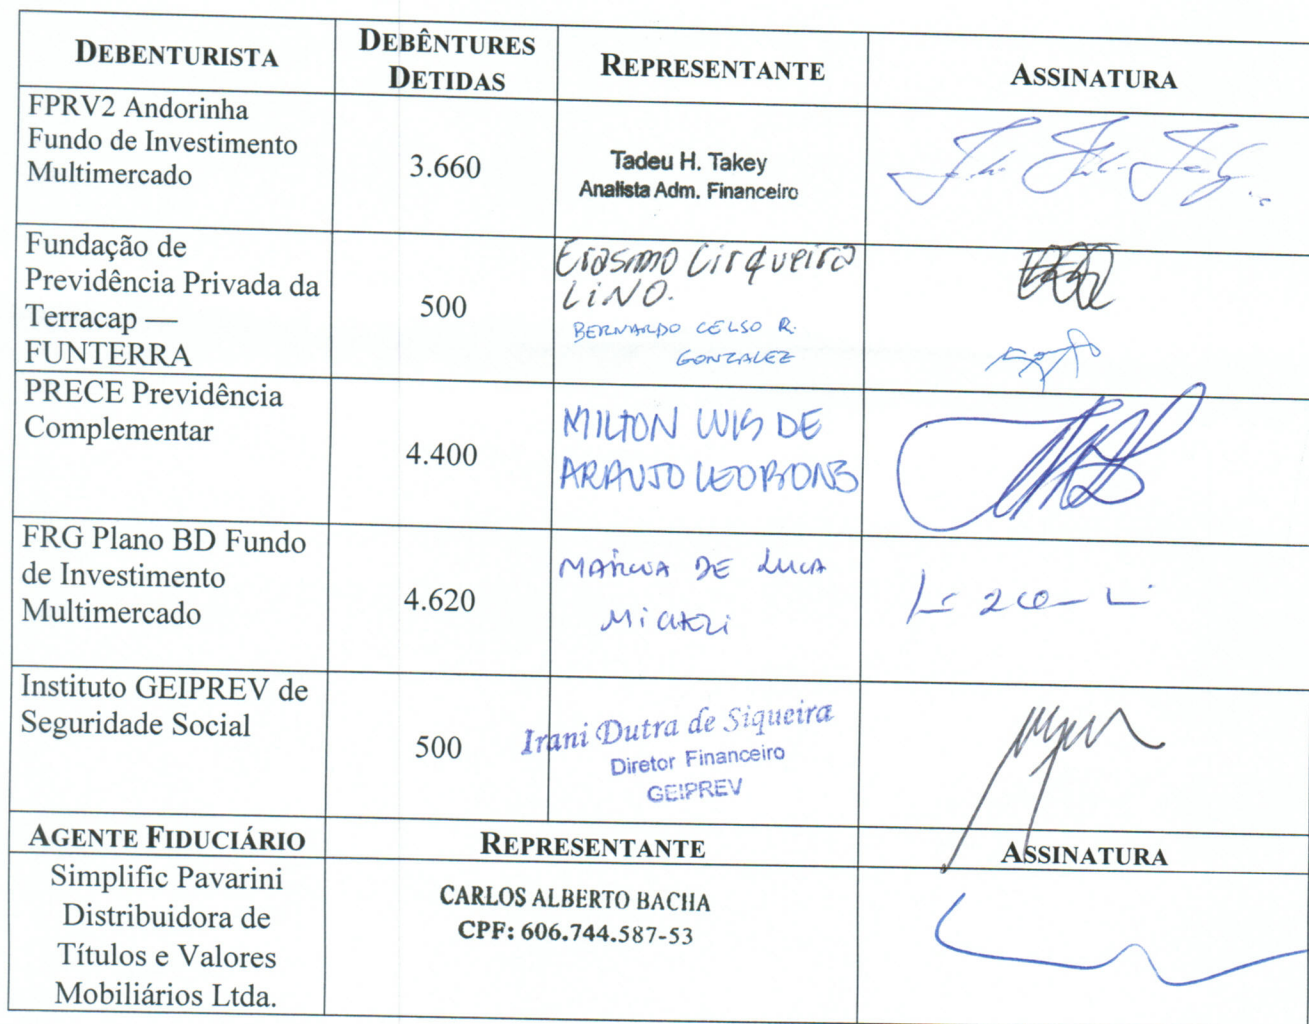 DEBENTURISTA
DEBÊNTURES
DETIDAS
REPRESENTANTE
ASSINATURA
FPRV2 Andorinha
Fundo de Investimento
Multimercado
3.660
Tadeu H. Takey
Analista Adm. Financeiro
Fundação de
Previdência Privada da
Terracap —
FUNTERRA
500
Erasmo Cirqueira
LINO.
BERNARDO CELSO R.
GONZALEZ
PRECE Previdência
Complementar
4.400
MILTON LUIS DE
ARAUJO
FRG Plano BD Fundo
de Investimento
Multimercado
4.620
DE LUCA
Instituto GEIPREV de
Seguridade Social
500
Irani Dutra de Siqueira
Diretor Financeiro
GEIPREV
AGENTE FIDUCIÁRIO
REPRESENTANTE
ASSINATURA
Simplific Pavarini
Distribuidora de
Títulos e Valores
Mobiliários Ltda.
CARLOS ALBERTO BACHA
CPF: 606.744.587-53